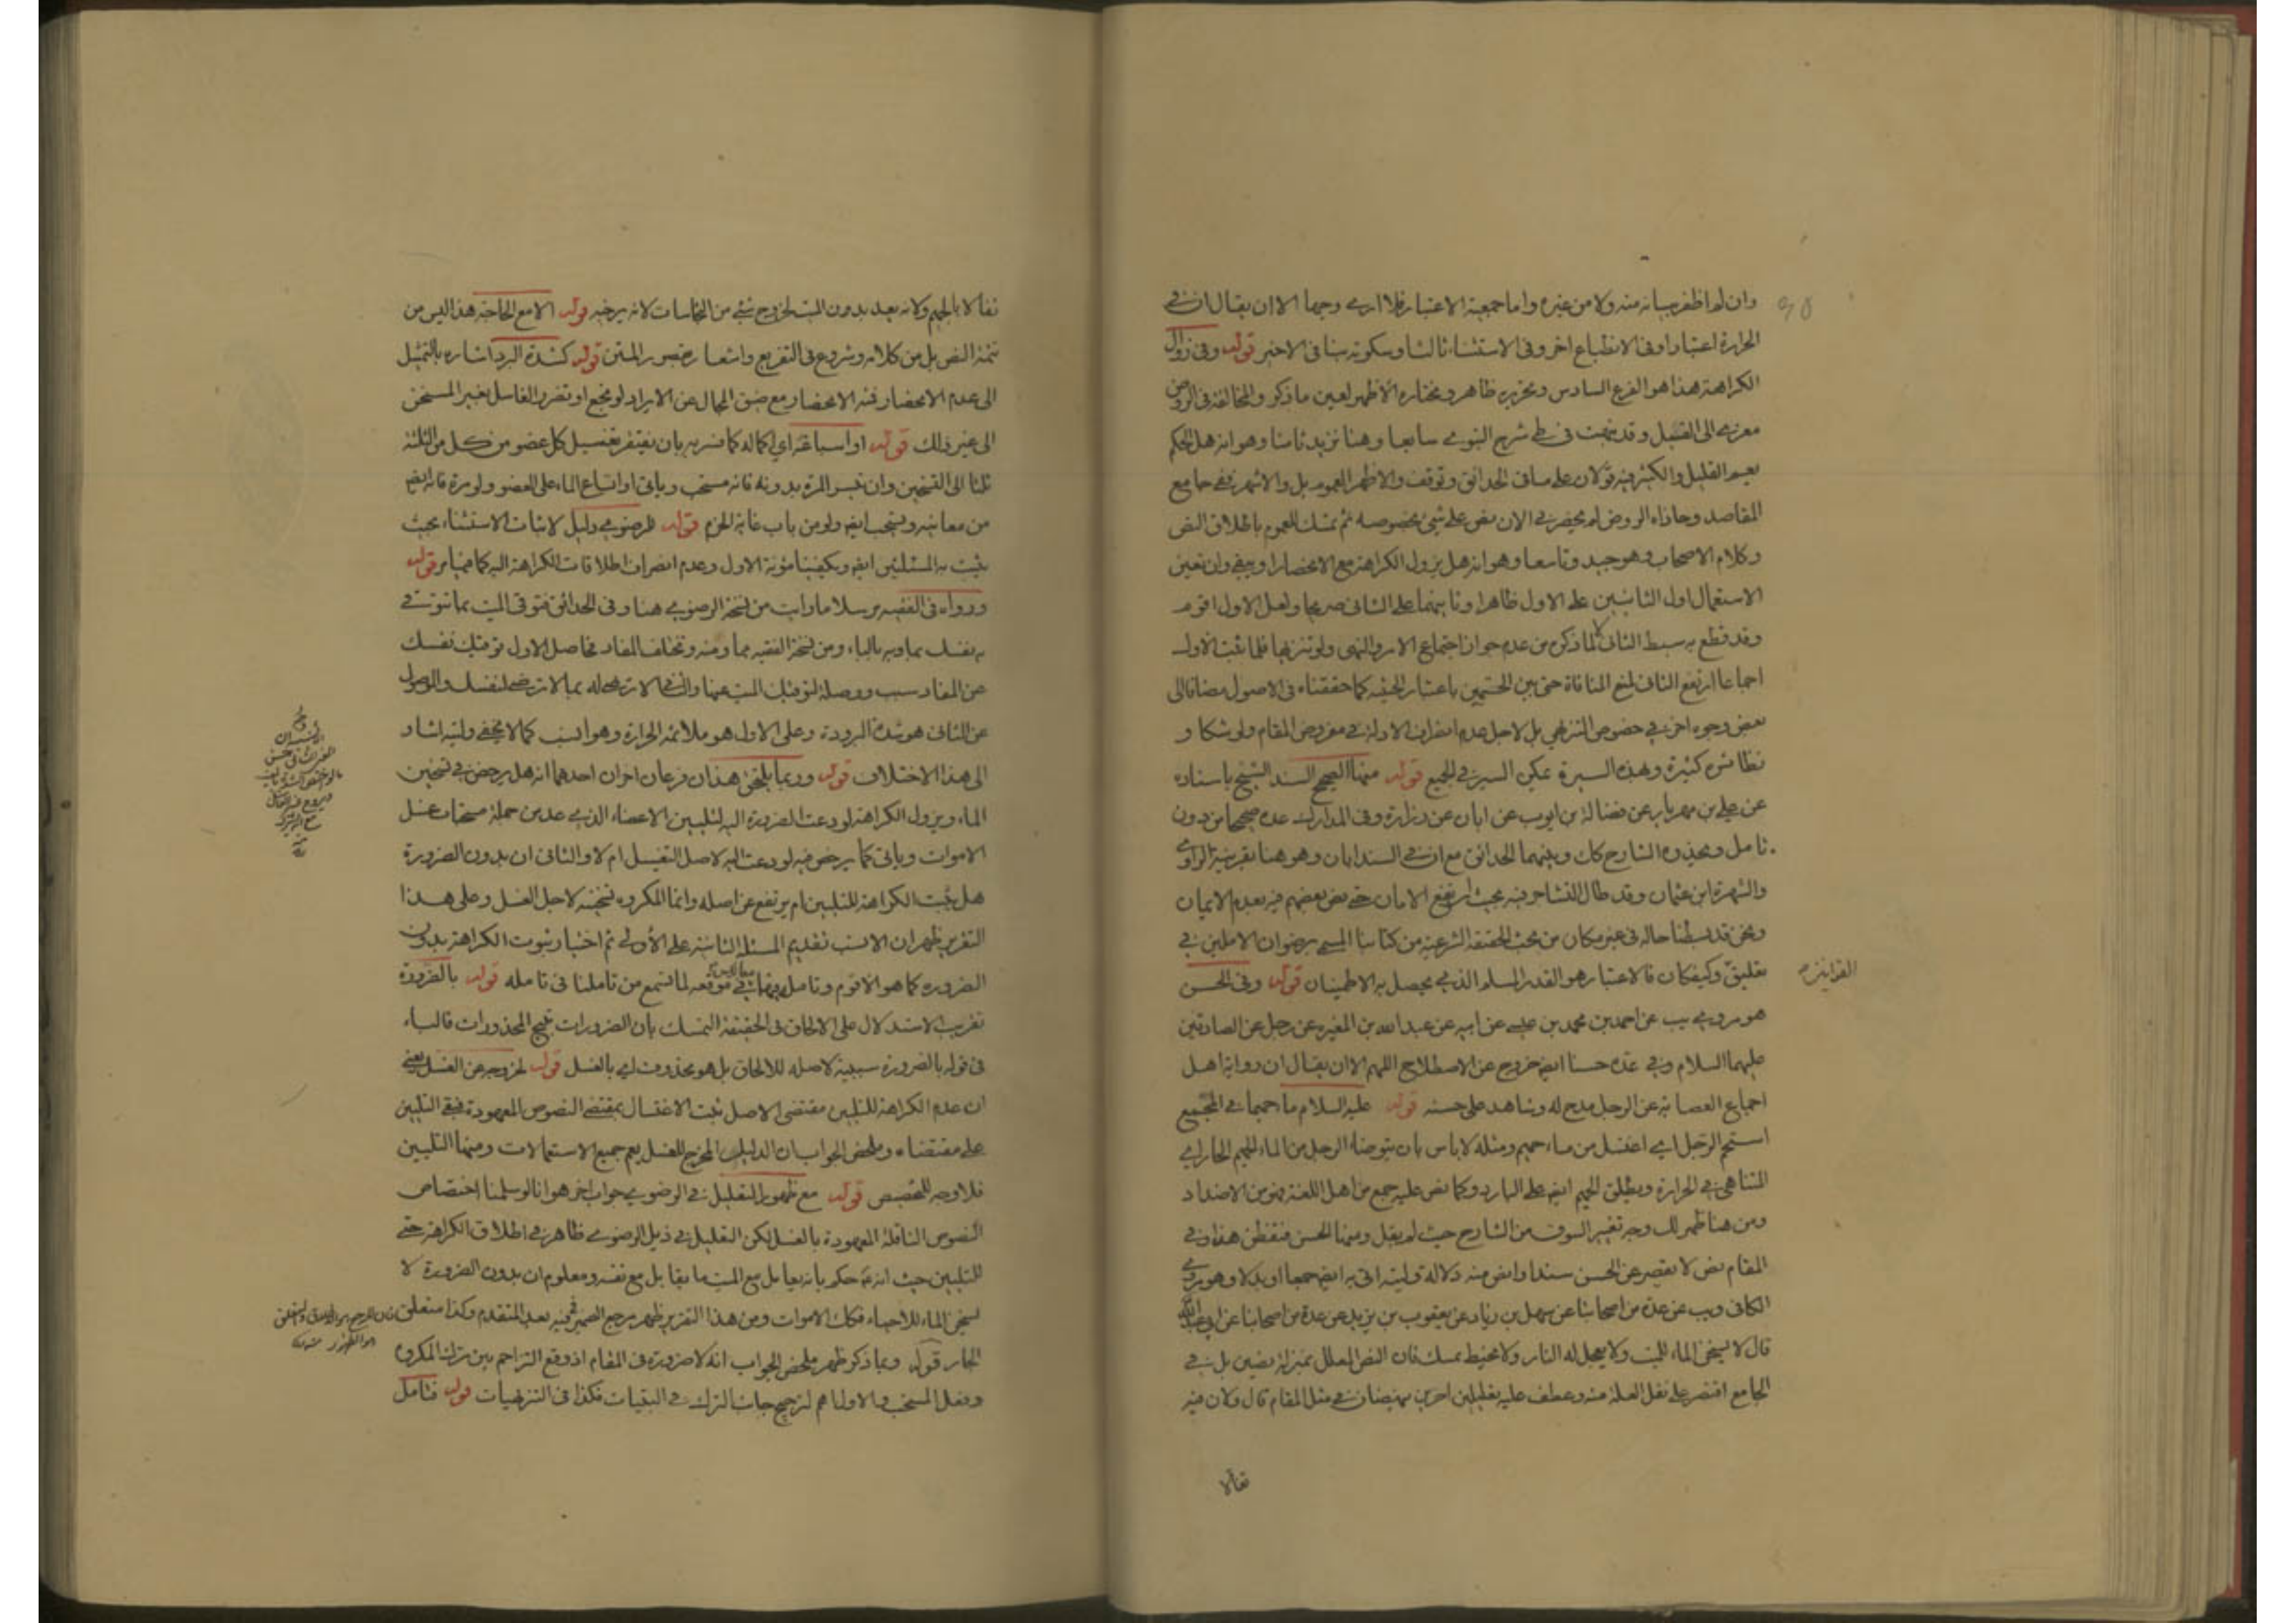 وان لم اظفر ببيانه منه ولا من غيره واما جمعية الاعتبار فلا ارى وجهها الا ان يقال ان في
الحرارة اعتبارا وفي الانطباع اخر وفي الاستثناء ثالثا وسكوته بنا في الاخير قوله وفي زوال
الكراهة هذا هو الفرع السادس وتحريره ظاهر ومختاره الاظهر لعين ما ذكر والمخالفة في الروض
معزى الى القيل وقد في شرح النبوي سابعا وهنا نزيد ثامنا وهو انه هل الحكم
يعم القليل والكثير فيه قولان على ما في الحدائق وتوقف والاظهر العموم بل والاشهر ففي جامع
المقاصد وحاذاه الروض لم يحضرني الان نص على شيئ بخصوصه ثم تمسك للعموم باطلاق النص
وكلام الاصحاب وهو جيد وتاسعا وهو انه هل يزول الكراهة مع الانحصار او يبقى وان تعين
الاستعمال اول الثانيين على الاول ظاهرا وثانيهما على الثاني صريحا ولعل الاول اقوم
وقد قطع به سبط الثاني لا لما ذكره من عدم جواز اجتماع الامر والنهى ولو تنزيها فلما ثبت الاول
اجماعا ارتفع الثاني لمنع المنافاة حتى بين الحتميين باعتبار الحيثية كما حققناه في الاصول مضافا الى
بعض وجوه اخر في خصوص التنزيهي بل لاجل عدم انصراف الادلة في مفروض المقام ولو شكا و
نظائره كثيرة وبهذه السيرة يمكن السير في الجميع قوله منها الصحيح السند الشيخ باسناده
عن علي بن مهزيار عن فضالة بن ايوب عن ابان عن زرارة وفي المدارك عده صحيحا من دون
تامل ويحذوه الشارح كك وبينهما الحدائق مع ان في السند ابان وهو هنا بقرينة الراوي
والشهرة ابن عثمان وقد طال التشاجر فيه بحيث ارتفع الامان حتى نص بعضهم فيه بعدم الايمان
ونحن قد بسطنا حاله في غير مكان من بحث الحقيقة الشرعية من كتابنا المسمى برضوان الاملين في
تعليق القوانين وكيفكان فالاعتبار هو القدر المسلم الذي يحصل به الاطمينان قوله وفي الحسن
هو مروي يب عن احمد بن محمد بن عيسى عن ابيه عن عبد الله بن المغيرة عن رجل عن الصادقين
عليهما السلام وفي عده حسنا ايضا خروج عن الاصطلاح اللهم الا ان يقال ان رواية اهل
اجماع العصابة عن الرجل مدح له وشاهد على حسنه قوله عليه السلام ماء حميما في المجمع
استحم الرجل اي اغتسل من ماء حميم ومثله لا باس بان يتوضأ الرجل من الماء الحميم الحار اي
المتناهي في الحرارة ويطلق الحميم ايضا على البارد وكما نص عليه جمع من اهل اللغة فهو من الاضداد
ومن هنا ظهر لك وجه تغيير السوق من الشارح حيث لم يقل ومنها الحسن فتفطن هذا وفي
المقام نص لا يقصر عن الحسن سندا واضح منه دلالة وليته اتى به ايضا جمعا او بدلا وهو مروي
الكافي ويب عن عدة من اصحابنا عن سهل بن زياد عن يعقوب بن يزيد عن عدة من اصحابنا عن ابي عبد الله
قال لا يسخن الماء للميت ولا يعجل له النار ولا يحنط بمسك فان النص المعلل بمنزلة نصين بل في
الجامع اقتصر على نقل العلة منه وعطف عليه تعليلين اخرين ينهضان في مثل المقام قال ولان فيه
تفألا
تفألا بالحميم ولانه يعد بدون الميت لخروج شيئ من النجاسات لانه يرخيه قوله الا مع الحاجة هذا ليس من
تتمة النص بل من كلامه وشروع في التفريع واشعار المتن قوله كشدة البرد اشاره بالتمثيل
الى عدم الانحصار فيه الانحصار مع ضيق المجال عن الايراد لو تجمع او تضرر الغاسل بغير المسخن
الى غير ذلك قوله او اسباغه اي اكماله كما فسر به بان يفتقر تغسيل كل عضو من كل من الثلثة
ثلثا الى التسخين وان تيسر المرة بدونه فانه مستحب وياتي او اتساع الماء على العضو ولو مرة فانه ايضا
من معانيه ويستحب ايضا ولو من باب غاية الحزم قوله للرضوي دليل لاثبات الاستثناء بحيث
يثبت به المسئلتين ايضا ويكفينا مؤنة الاول وعدم انصراف اطلاقات الكراهة اليه كما قوله
ورواه في الفقيه مرسلا ما رايت من نسخة الرضوي هنا وفي الحدائق فتوقى الميت بما تتوقى
به نفسك بما وبه بالباء ومن نسخة الفقيه مما ومنه وتختلف المفاد فحاصل الاول توقيك نفسك
عن المفاد سبب ووصلة لتوقيك الميت عنها
عن الثاني هو شدة البرودة وعلى الاول هو ملائمة الحرارة وهو انسب كما لا يخفى وليته اشار
الى هذا الاختلاف قوله وربما يلحق هذان فرعان اخران احدهما انه هل يرخص في تسخين
الماء ويزول الكراهة لو دعت الضرورة اليه لتليين الاعضاء الذي عد من جملة مستحبات غسل
الاموات وياتي كما يرخص فيه لو دعت اليه لاصل التغسيل ام لا والثاني ان بدون الضرورة
هل يثبت الكراهة للتليين ام يرتفع عن اصله وانما المكروه تسخينه لاجل الغسل وعلى هذا
التقرير ظهر ان الانسب تقديم المسئلة الثانية على الأولى ثم اختيار ثبوت الكراهة بدون
الضرورة كما هو الاقوم وتامل في موقعه لما تسمع من تاملنا في تامله قوله بالضرورة
تقريب الاستدلال على الالحاق في الحقيقة التمسك بان الضرورات تبيح المحذورات فالباء
في قوله بالضرورة سببية لا صله للالحاق بل هو محذوف اي بالغسل قوله لخروجه عن الغسل يعني
ان عدم الكراهة للتليين مقتضى الاصل ثبت الاغتسال بمقتضى النصوص المعهودة فبقى التليين
على مقتضاه وملخص الجواب ان الدليل المخرج للغسل يعم جميع الاستعمالات ومنها التليين
فلا وجه للتخصيص قوله مع ظهور التعليل في الرضوي جواب اخر هو انا لو سلمنا اختصاص
النصوص الناقلة المعهودة بالغسل لكن التعليل في ذيل الرضوي ظاهر في اطلاق الكراهة حتى
للتليين حيث انه ع حكم بانه يعامل مع الميت ما يقابل مع نفسه ومعلوم ان بدون الضرورة لا
يسخن الماء للاحياء فكك الاموات ومن هذا التقرير ظهر مرجع الضمير فى فيه بعد المتقدم وكذا متعلق
الجار قوله وبما ذكر ظهر ملخص الجواب انه لا ضرورة في المقام اذ وقع التزاحم بين ترك المكروه
وفعل المستحب والاولى هم لترجيح جانب الترك في البقيات فكذا في التنزيهيات قوله فتامل